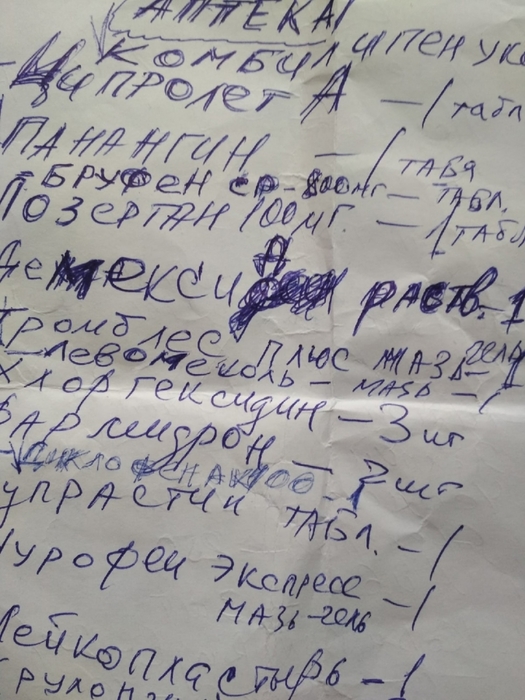 АПТЕКА
КОМБИЛИПЕН УКО
ЦИПРОЛЕТ А — 1 табл
ПАНАНГИН — 1 ТАБЛ
БРУФЕН СР-800МГ — ТАБЛ.
ЛОЗЕРТАН 100МГ. — 1 ТАБЛ
РАСТВ.-1
Тромблес ПЛЮС МАЗЬ-гель-1
-Левомеколь — МАЗЬ — 1
Хлоргексидин — 3 шт
— 2 шт
ДИКЛОФЕНАК 100 - 1
упрастин ТАБЛ. — 1
урофен экспресс
МАЗЬ-гель — 1
Лейкопластырь — 1